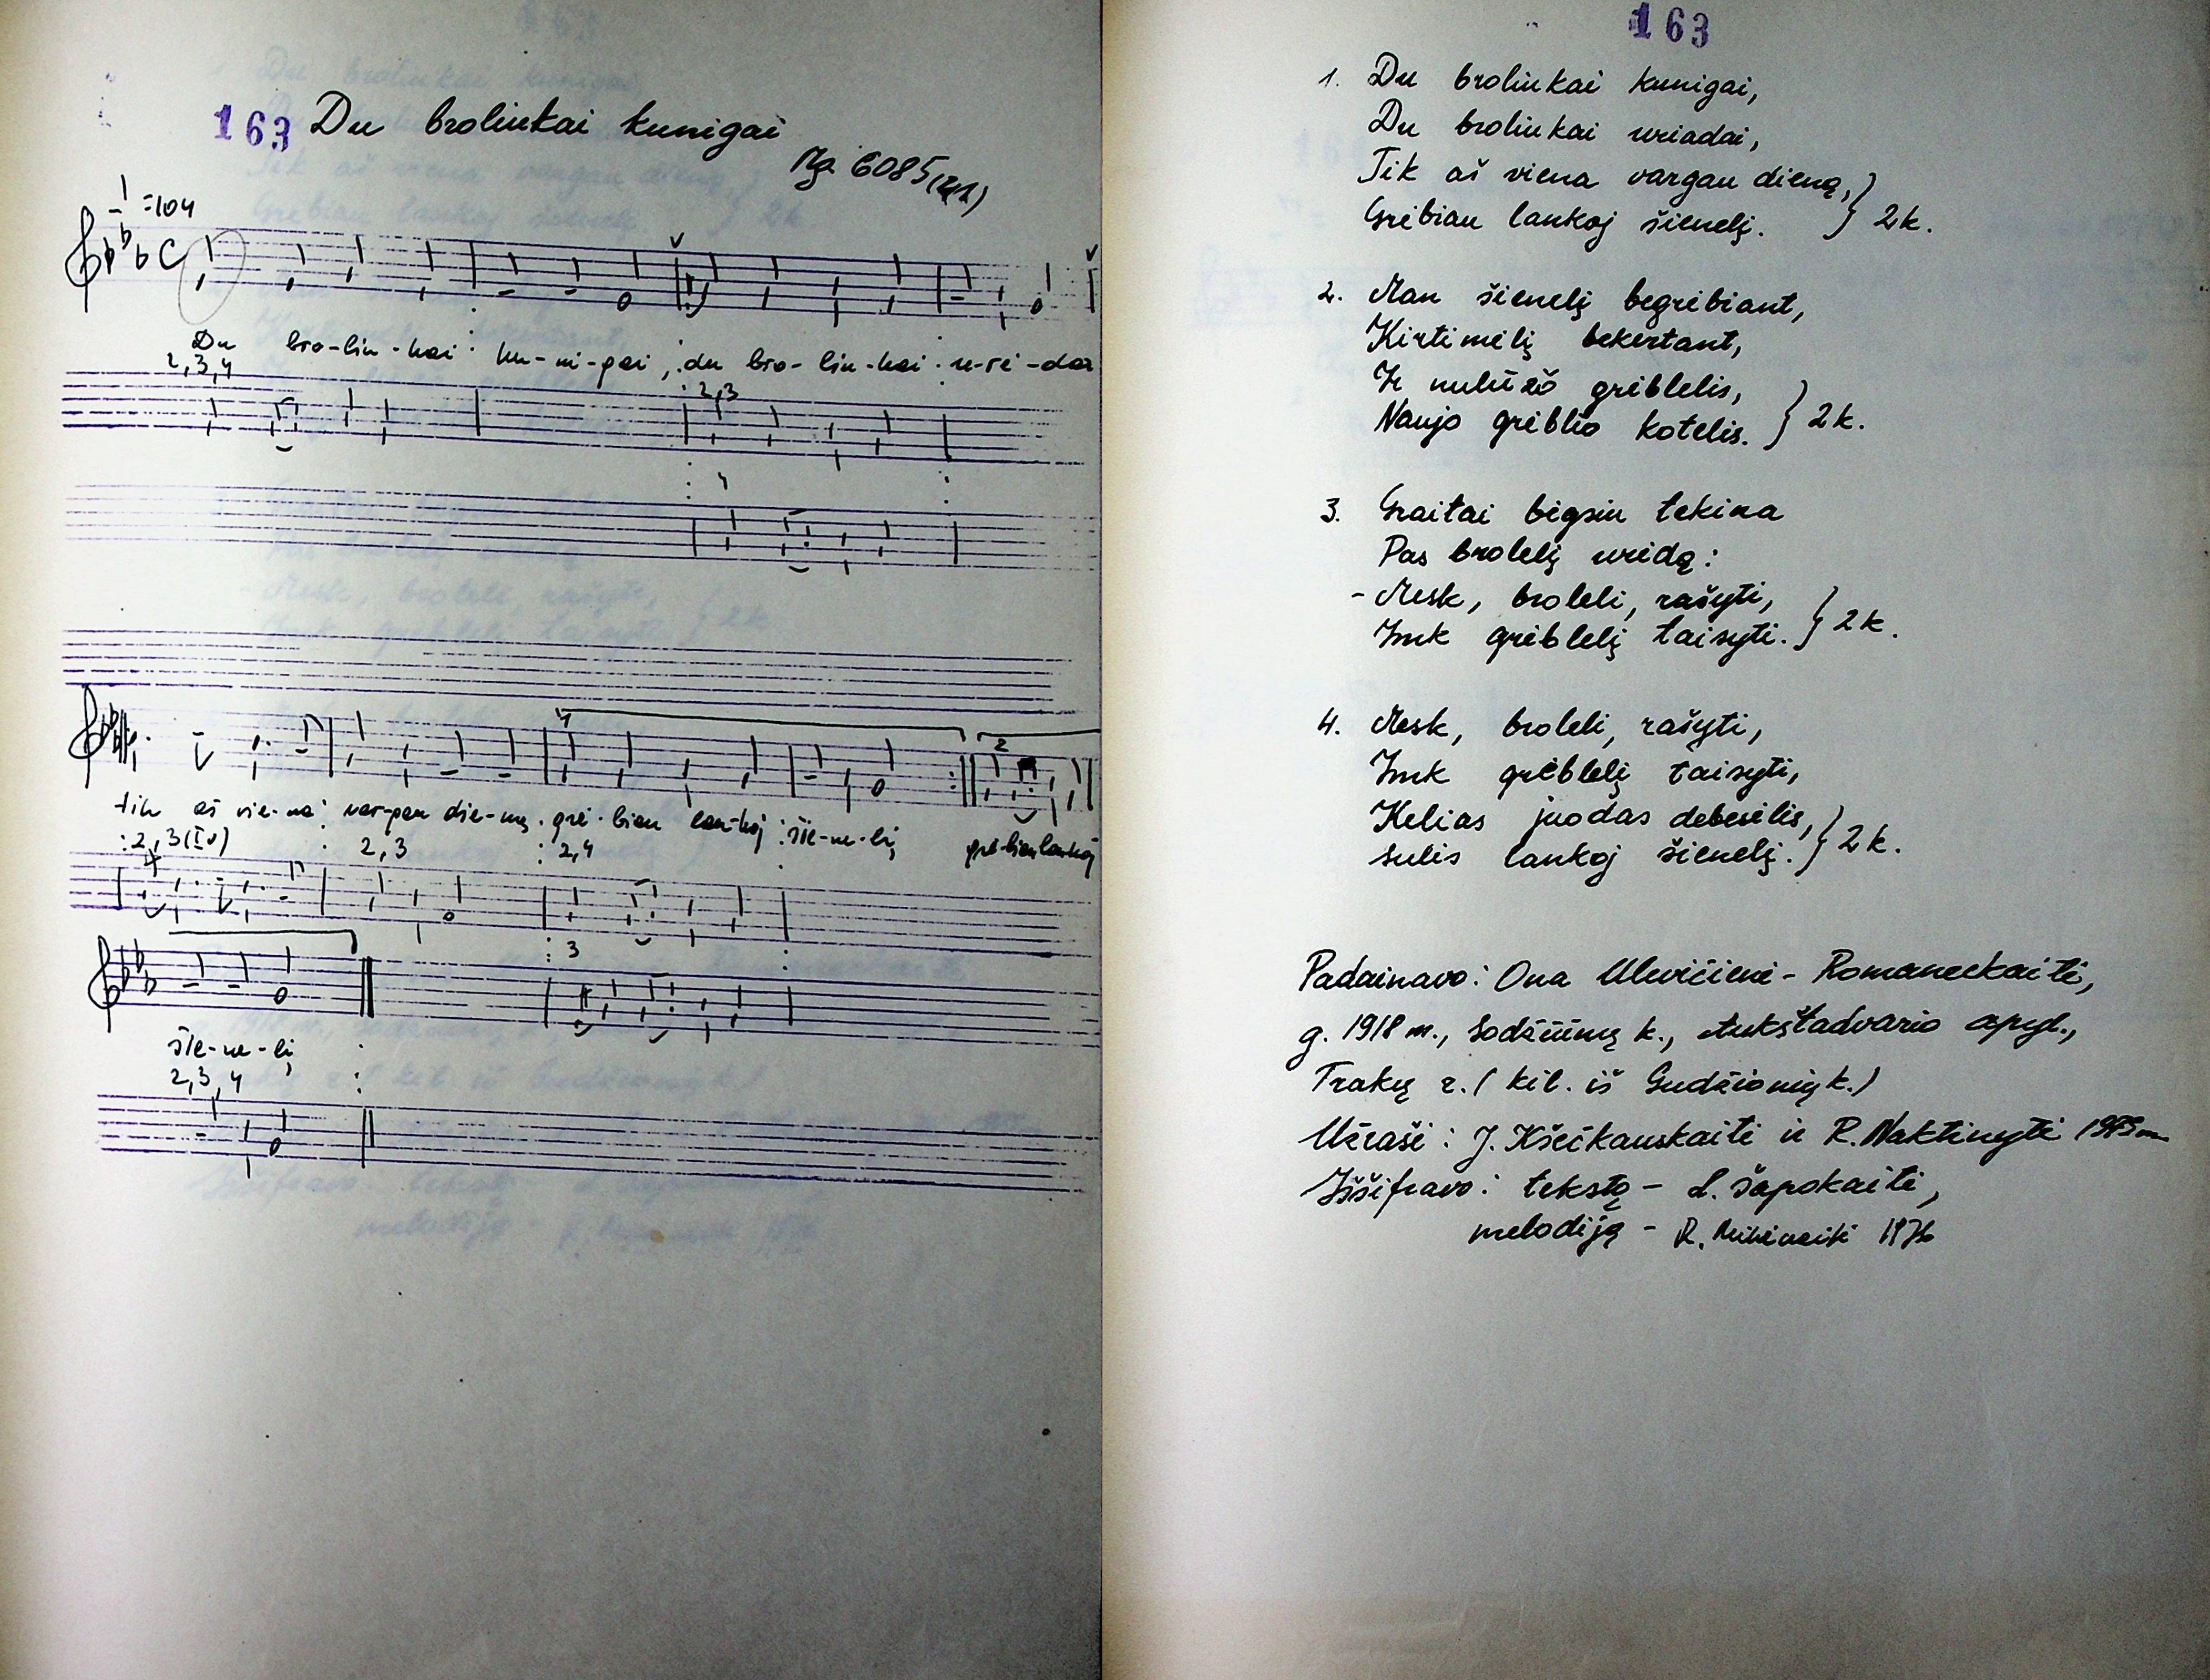 163 Du broliukai kunigai
Mg 6085(21)
=104
Du bro-liu-kai ku-ni-gai, du bro-liu-kai u-rė-dai
2,3,4
2,3
4
1
tik aš vie-na var-gau die-ną, grė-biau lan-koj šie-ne-lį
2
grė-biau lankoj
2,3(IV) 2,3 2,4
3
šie-ne-lį
2,3,4
163
1. Du broliukai kunigai,
Du broliukai uriadai,
Tik aš viena vargau dieną, } 2k.
Grėbiau lankoj šienelį.
2. Man šienelį begrėbiant,
Kirtimėlį bekertant,
Ir nulūžo grėblelis, } 2k.
Naujo grėblio kotelis.
3. Graitai bėgsiu tekina
Pas brolelį urėdą:
- Mesk, broleli, rašyti, } 2k.
Imk grėblelį taisyti.
4. Mesk, broleli, rašyti,
Imk grėblelį taisyti,
Kelias juodas debesėlis, } 2k.
Sulis lankoj šienelį.
Padainavo: Ona Ulevičienė - Romaneckaitė,
g. 1918 m., Sodžiūnų k., Aukštadvario apyl.,
Trakų r. (kil. iš Gudžionių k.)
Užrašė: J. Kšečkauskaitė ir R. Naktinytė 1975 m.
Iššifravo: tekstą - L. Šapokaitė,
melodiją - R. 1976